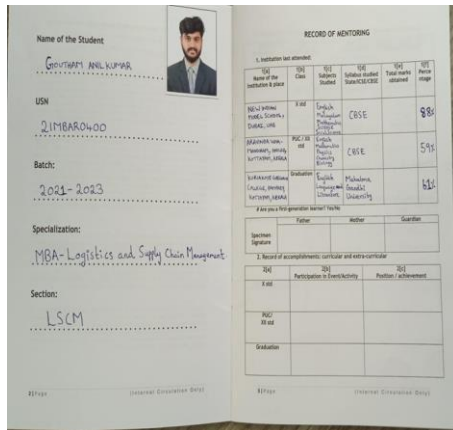 Name of the Student
GOUTHAM ANIL KUMAR
USN
21MBAR0400
Batch:
2021-2023
Specialization:
MBA- Logistics and Supply Chain Management
Section:
LSCM
8|Page
(Internal Circulation Only)
RECORD OF MENTORING
1. Institution last attended:
1[a] 1[b] 1[c] 1[d] 1[e] 1[f]
Name of the Institution & place
Class
Subjects Studied
Syllabus studied State/ICSE/CBSE
Total marks obtained
Percentage
NEW INDIAN MODEL SCHOOL, DUBAI, UAE
X std
English
Malayalam
Mathematics
CBSE
88%
PUC / XII std
English
Mathematics
Physics
Chemistry
Biology
CBSE
59%
Graduation
English Language and Literature
Mahatma Gandhi University
61%
# Are you a first-generation learner? Yes/No
Father Mother Guardian
Specimen Signature
2. Record of accomplishments: curricular and extra-curricular
2[a] 2[b] 2[c]
Participation in Event/Activity
Position / achievement
X std
PUC/
XII std
Graduation
9|Page
(Internal Circulation Only)